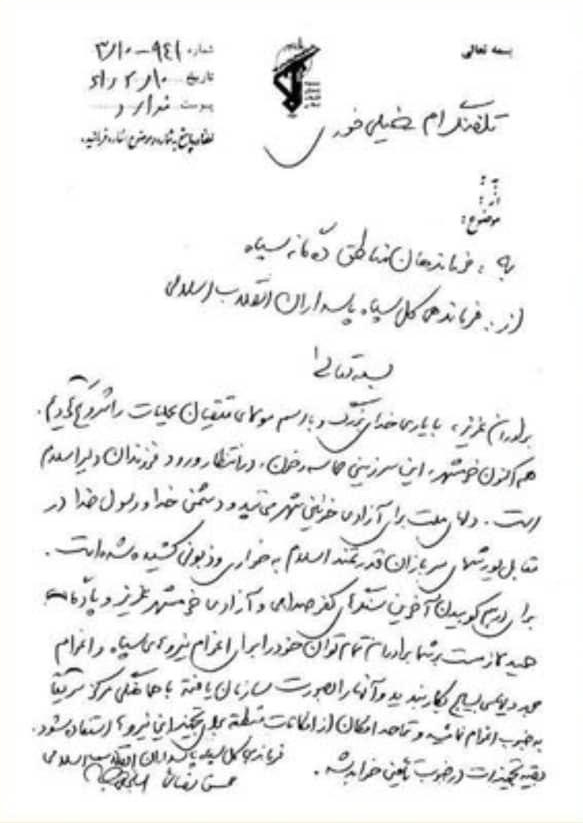 بسمه تعالی
شماره ۹۴۱-۳/۰
تاریخ ۶۱/۲/۱۰
پیوست ندارد
لطفا در پاسخ به شماره و موضوع اشاره فرمائید.
تلفنگرام خیلی فوری
به:
از:
موضوع:
به: فرماندهان مناطق ده‌گانه سپاه
از: فرماندهی کل سپاه پاسداران انقلاب اسلامی
بسمه تعالی
برادران عزیز، با یاری خدای بزرگ و با رسم مولای متقیان عملیات را شروع کردیم.
هم اکنون خرمشهر، این سرزمین حماسه و خون، در انتظار ورود فرزندان دلیر اسلام
است. دلهای ملت برای آزادی خونین شهر می‌تپد و دشمن خدا و رسول خدا در
مقابل یورشهای سربازان قدرتمند اسلام به خواری و ذبونی کشیده شده است.
برای درهم کوبیدن آخرین سنگرهای کفر صدامی و آزادی خرمشهر عزیز و
جدید لازمست شما برادران تمام توان خود را برای اعزام نیروهای سپاه و اعزام
جدید بسیج بکار بندید و آنها را بصورت سازمان یافته با هماهنگی مرکز سریعاً
به جنوب اعزام نمائید و تا حد امکان از امکانات منطقه برای تجهیز این نیروها استفاده شود.
بقیه تجهیزات در جنوب تأمین خواهد شد.
فرماندهی کل سپاه پاسداران انقلاب اسلامی
محسن رضائی